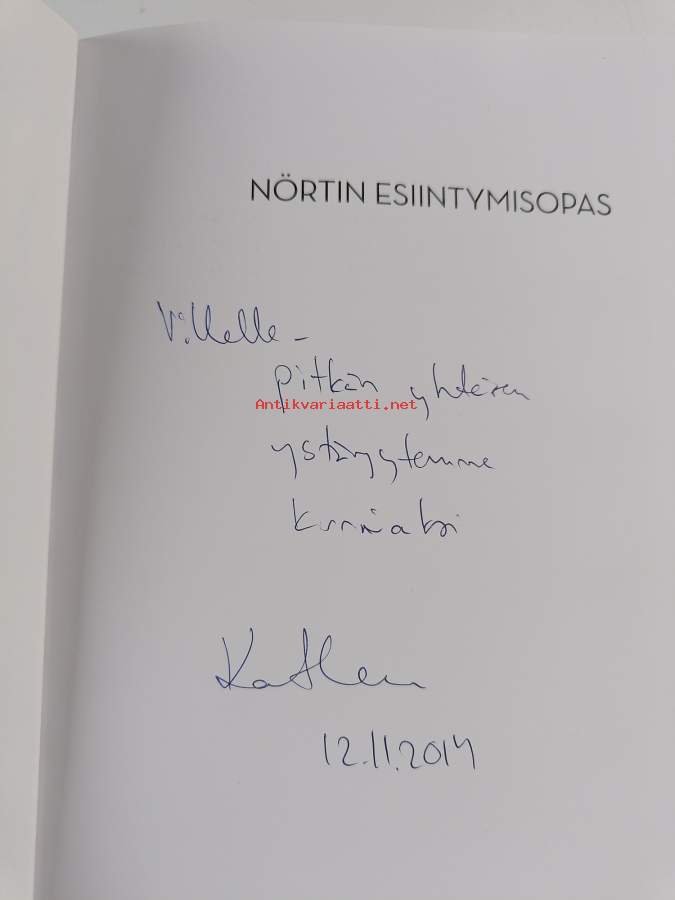 NÖRTIN ESIINTYMISOPAS
Villelle –
pitkän yhteisen
Antikvariaatti.net
ystävyytemme
kunniaksi
Katleena
12.11.2014